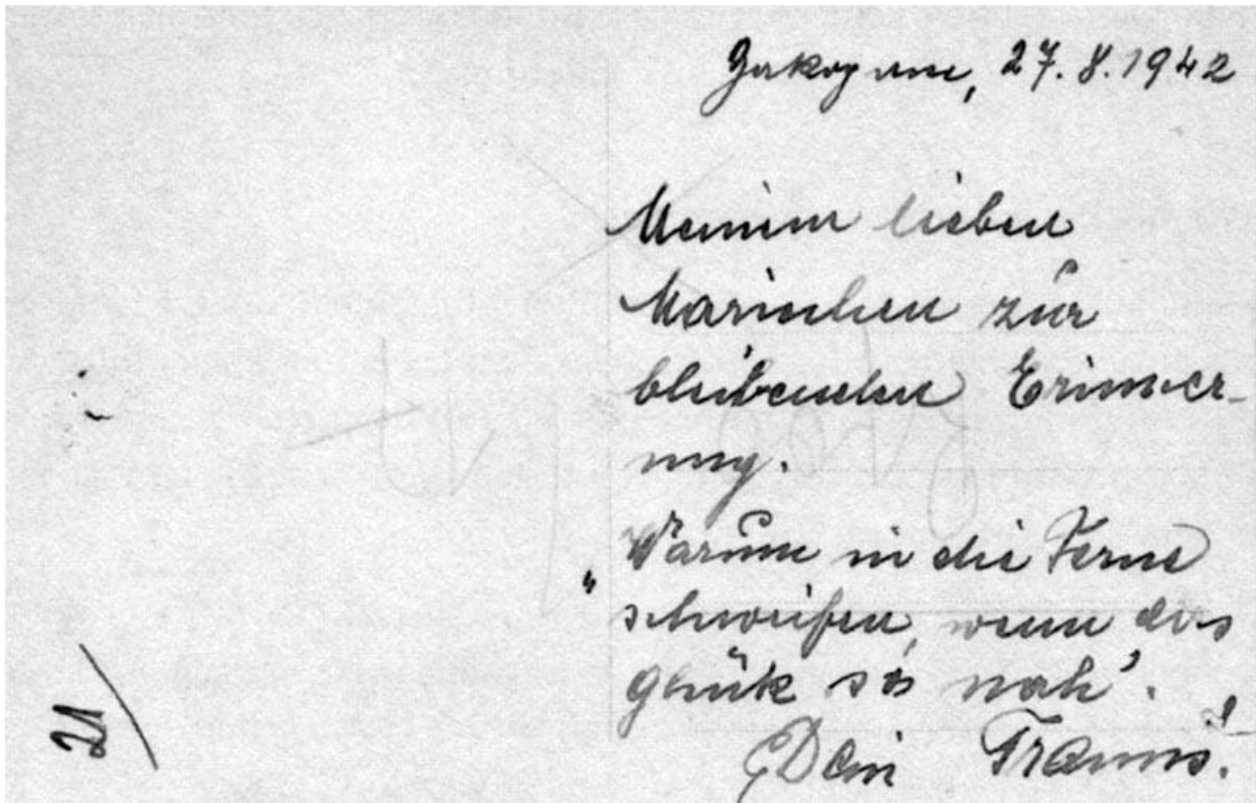 27.8.1942
Meinem lieben
Marischen zur
bleibenden Erinner-
ung.
"Warum in die Ferne
schweifen, wenn das
Glück so nah'.
Dein
21